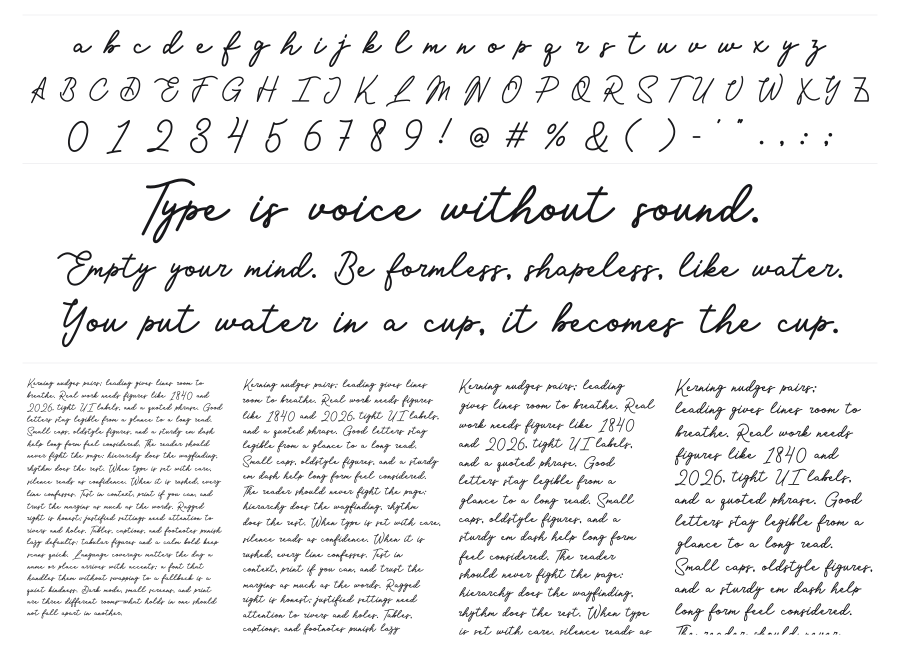 a b c d e f g h i j k l m n o p q r s t u v w x y z
A B C D E F G H I J K L M N O P Q R S T U V W X Y Z
0 1 2 3 4 5 6 7 8 9 ! @ # % & ( ) - ' " . , : ;
Type is voice without sound.
Empty your mind. Be formless, shapeless, like water.
You put water in a cup, it becomes the cup.
Kerning nudges pairs; leading gives lines room to
breathe. Real work needs figures like 1840 and
2026, tight UI labels, and a quoted phrase. Good
letters stay legible from a glance to a long read.
Small caps, oldstyle figures, and a sturdy em dash
help long form feel considered. The reader should
never fight the page; hierarchy does the wayfinding,
rhythm does the rest. When type is set with care,
silence reads as confidence. When it is rushed, every
line confesses. Test in context, print if you can, and
trust the margins as much as the words. Ragged
right is honest; justified settings need attention to
rivers and holes. Tables, captions, and footnotes punish
lazy defaults; tabular figures and a calm bold keep
scans quick. Language coverage matters the day a
name or place arrives with accents; a font that
handles them without swapping to a fallback is a
quiet kindness. Dark mode, small screens, and print
are three different rooms—what holds in one should
not fall apart in another.
Kerning nudges pairs; leading gives lines
room to breathe. Real work needs figures
like 1840 and 2026, tight UI labels,
and a quoted phrase. Good letters stay
legible from a glance to a long read.
Small caps, oldstyle figures, and a sturdy
em dash help long form feel considered.
The reader should never fight the page;
hierarchy does the wayfinding, rhythm
does the rest. When type is set with care,
silence reads as confidence. When it is
rushed, every line confesses. Test in
context, print if you can, and trust the
margins as much as the words. Ragged
right is honest; justified settings need
attention to rivers and holes. Tables,
captions, and footnotes punish lazy
Kerning nudges pairs; leading
gives lines room to breathe. Real
work needs figures like 1840
and 2026, tight UI labels,
and a quoted phrase. Good
letters stay legible from a
glance to a long read. Small
caps, oldstyle figures, and a
sturdy em dash help long form
feel considered. The reader
should never fight the page;
hierarchy does the wayfinding,
rhythm does the rest. When type
is set with care, silence reads as
Kerning nudges pairs;
leading gives lines room to
breathe. Real work needs
figures like 1840 and
2026, tight UI labels,
and a quoted phrase. Good
letters stay legible from a
glance to a long read.
Small caps, oldstyle figures,
and a sturdy em dash help
long form feel considered.
The reader should never